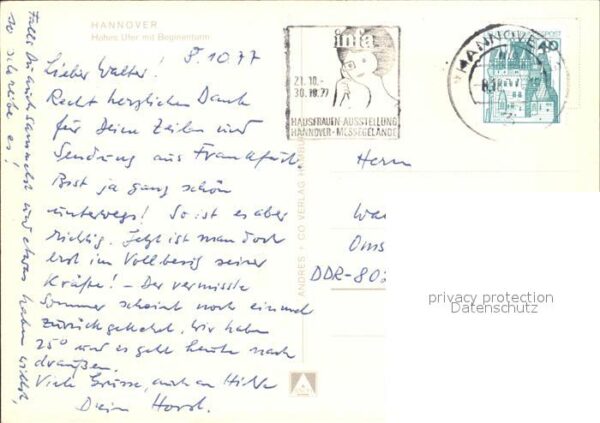 HANNOVER
Hohes Ufer mit Beginenturm
8.10.77
Lieber Walter!
Recht herzlichen Dank
für Deine Zeilen und
Sendung aus Frankfurt.
Bist ja ganz schön
unterwegs! So ist es aber
richtig. Jetzt ist man doch
erst im Vollbesitz seiner
Kräfte! - Der vermisste
Sommer scheint noch einmal
zurückgekehrt. Wir haben
25° und es geht heute nach
draußen.
Viele Grüsse, auch an Hilde
Dein Horst.
Falls Du auch sammelst und etwas haben willst,
so schreibe es!
ANDRES + CO VERLAG HAMBURG
infa
21.10.-
30.10.77
HAUSFRAUEN-AUSSTELLUNG
HANNOVER-MESSEGELÄNDE
HANNOVER
40
Herrn
Wa
Oms
DDR-802
privacy protection
Datenschutz